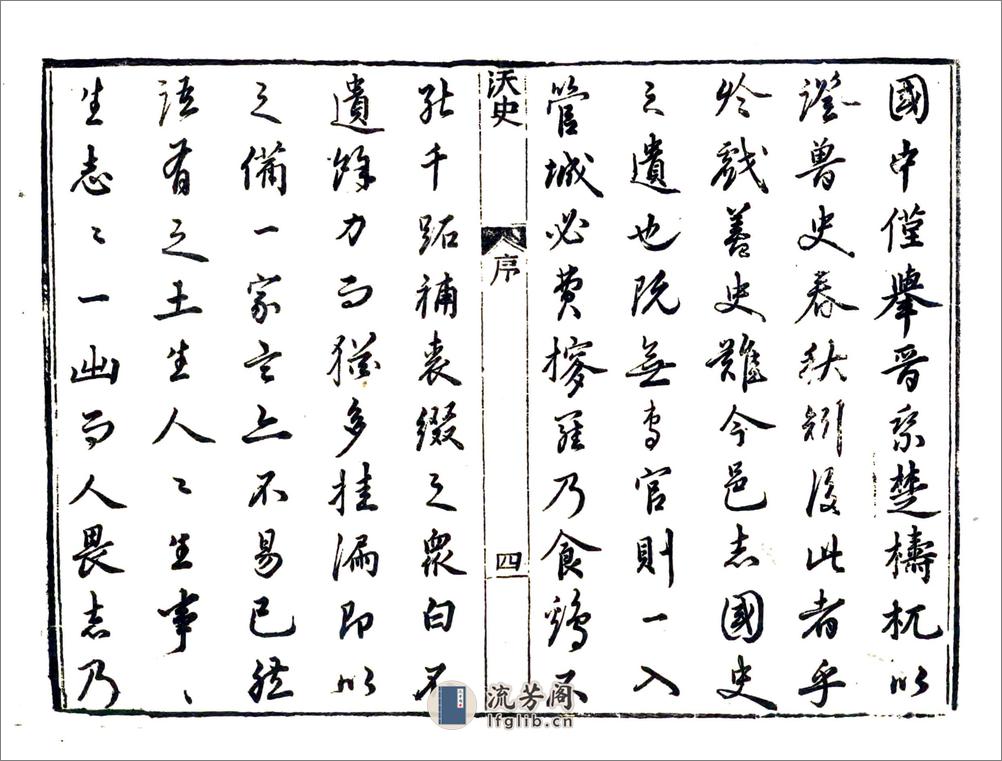 國中僅舉晉乘楚檮杌以
證魯史春秋矧後此者乎
於戲蓋史難今邑志國史
之遺也既無專官則一入
管城必費搜羅乃食鷄不
沃史
序
四
能千跖補裘綴之衆白不
遺餘力而猶多挂漏即以
之備一家言亦不易已然
語有之土生人〻生事〻
生志〻一出而人畏志乃
流芳阁
lfglib.cn